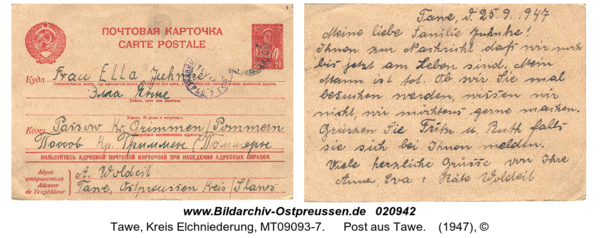 ПОЧТОВАЯ КАРТОЧКА
CARTE POSTALE
Куда Frau Ella Juhnke
Элла Юнке
Кому Passow Kr. Grimmen/Pommern
Пассов Кр. Гриммен/Поммерн
ПОЛЬЗУЙТЕСЬ АДРЕСНОЙ ПОЧТОВОЙ КАРТОЧКОЙ ПРИ НАВЕДЕНИИ АДРЕСНЫХ СПРАВОК
Адрес
отправителя
Adresse de
l'expéditeur
A. Woldeit
Tawe, Ostpreussen Kreis/Slawsk
Tawe, d. 25.9.1947
Meine liebe Familie Juhnke!
Ihnen zur Nachricht daß wir noch
bis jetzt am Leben sind. Mein
Mann ist tot. Ob wir Sie mal
besuchen werden, wissen wir
nicht, wir möchtens gerne machen.
Grüssen Sie Fritz u. Ruth falls
sie sich bei Ihnen melden.
Viele herzliche Grüsse von Ihre
Anna, Eva + Käte Woldeit
www.Bildarchiv-Ostpreussen.de 020942
Tawe, Kreis Elchniederung, MT09093-7. Post aus Tawe. (1947), ©